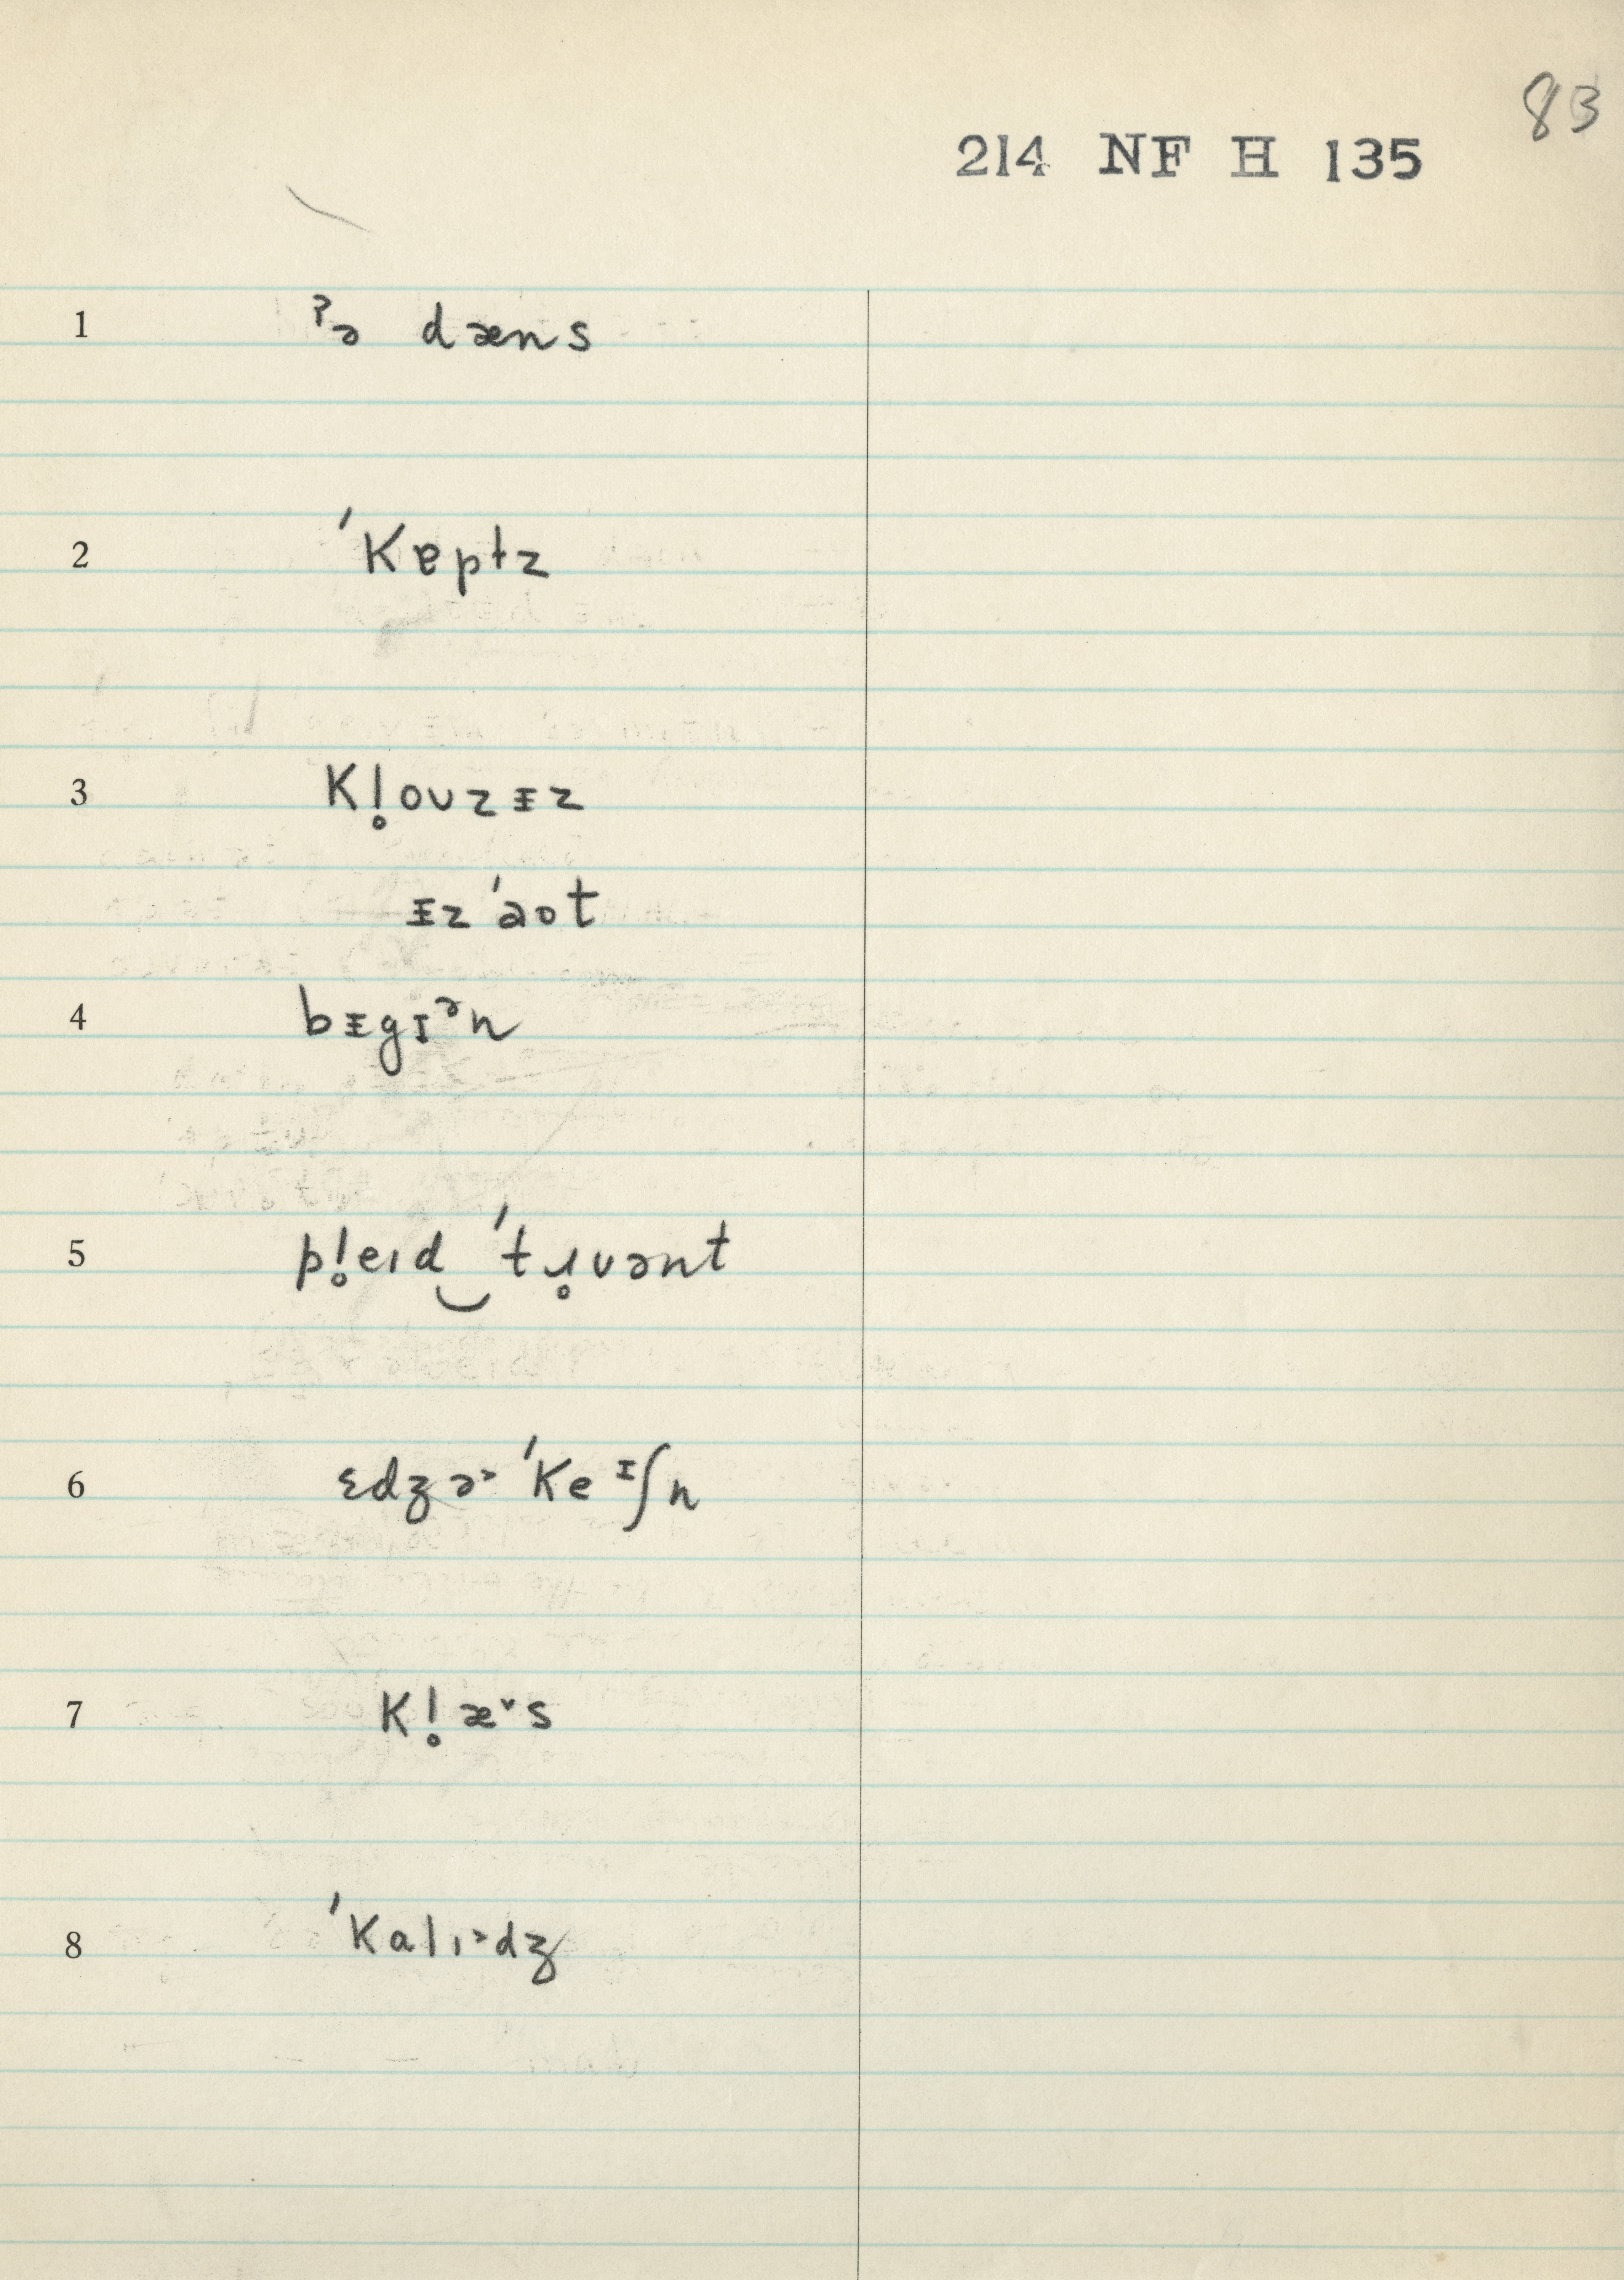 83
214 NF H 135
1 ˀə dæns
2 ˈkɐptz
3 kl̥oʊzɪz
ɪz ˈəot
4 bɪgɪᵊn
5 pl̥eɪd‿ˈtɹ̥uənt
6 ɛdʒə˞ ˈkeᶦʃn
7 kl̥æ˅s
8 ˈkalɪ˞dʒ